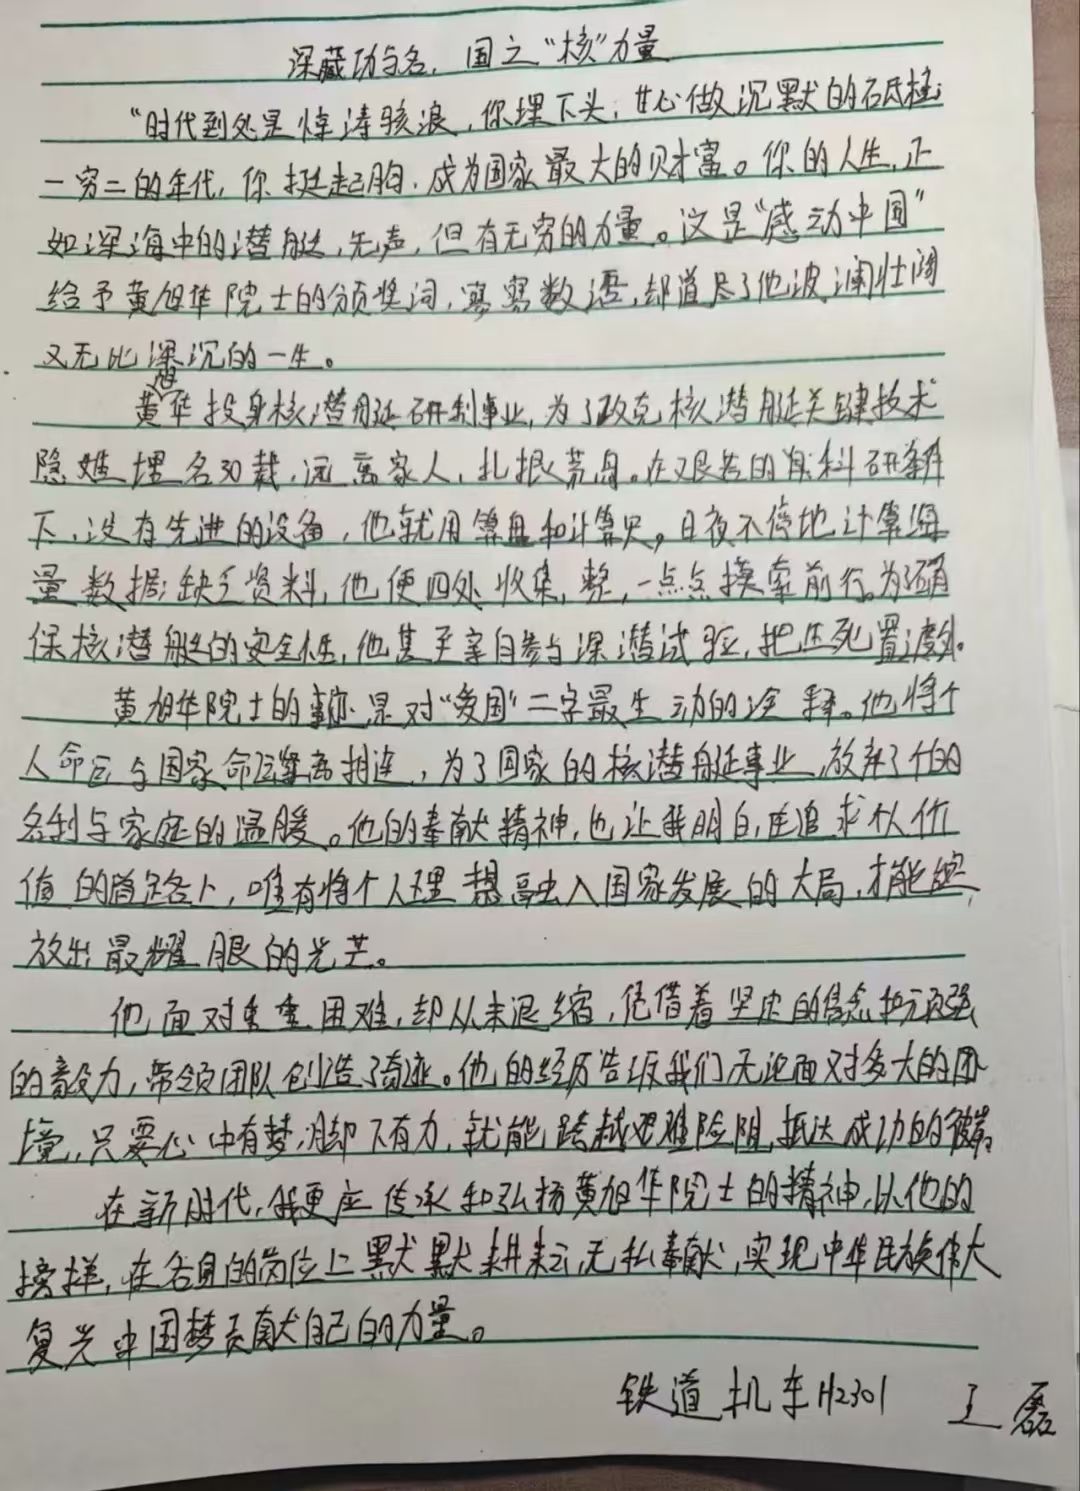 深藏功与名，国之“核”力量
“时代到处是惊涛骇浪，你埋下头，甘心做沉默的砥柱；
一穷二的年代，你挺起胸，成为国家最大的财富。你的人生，正
如深海中的潜艇，无声，但有无穷的力量。这是“感动中国”
给予黄旭华院士的颁奖词，寥寥数语，却道尽了他波澜壮阔
又无比深沉的一生。
黄旭华投身核潜艇研制事业，为了攻克核潜艇关键技术
隐姓埋名30载，远离家人，扎根荒岛。在艰苦的科研条件
下，没有先进的设备，他就用算盘和计算尺，日夜不停地计算海
量数据；缺乏资料，他便四处收集，整，一点点摸索前行。为了确
保核潜艇的安全性，他甚至亲自参与深潜试验，把生死置之度外。
黄旭华院士的事迹是对“爱国”二字最生动的诠释。他将个
人命运与国家命运紧密相连，为了国家的核潜艇事业，放弃了个的
名利与家庭的温暖。他的奉献精神，也让我明白，在追求个人价
值的道路上，唯有将个人理想融入国家发展的大局，才能绽
放出最耀眼的光芒。
他面对重重困难，却从未退缩，凭借着坚定的信念和顽强
的毅力，带领团队创造了奇迹。他的经历告诉我们，无论面对多大的困
境，只要心中有梦，脚下有力，就能跨越艰难险阻，抵达成功的彼岸。
在新时代，我更应传承和弘扬黄旭华院士的精神，以他的
榜样，在各自的岗位上默默耕耘，无私奉献，实现中华民族伟大
复兴中国梦贡献自己的力量。
铁道机车H2301 王磊